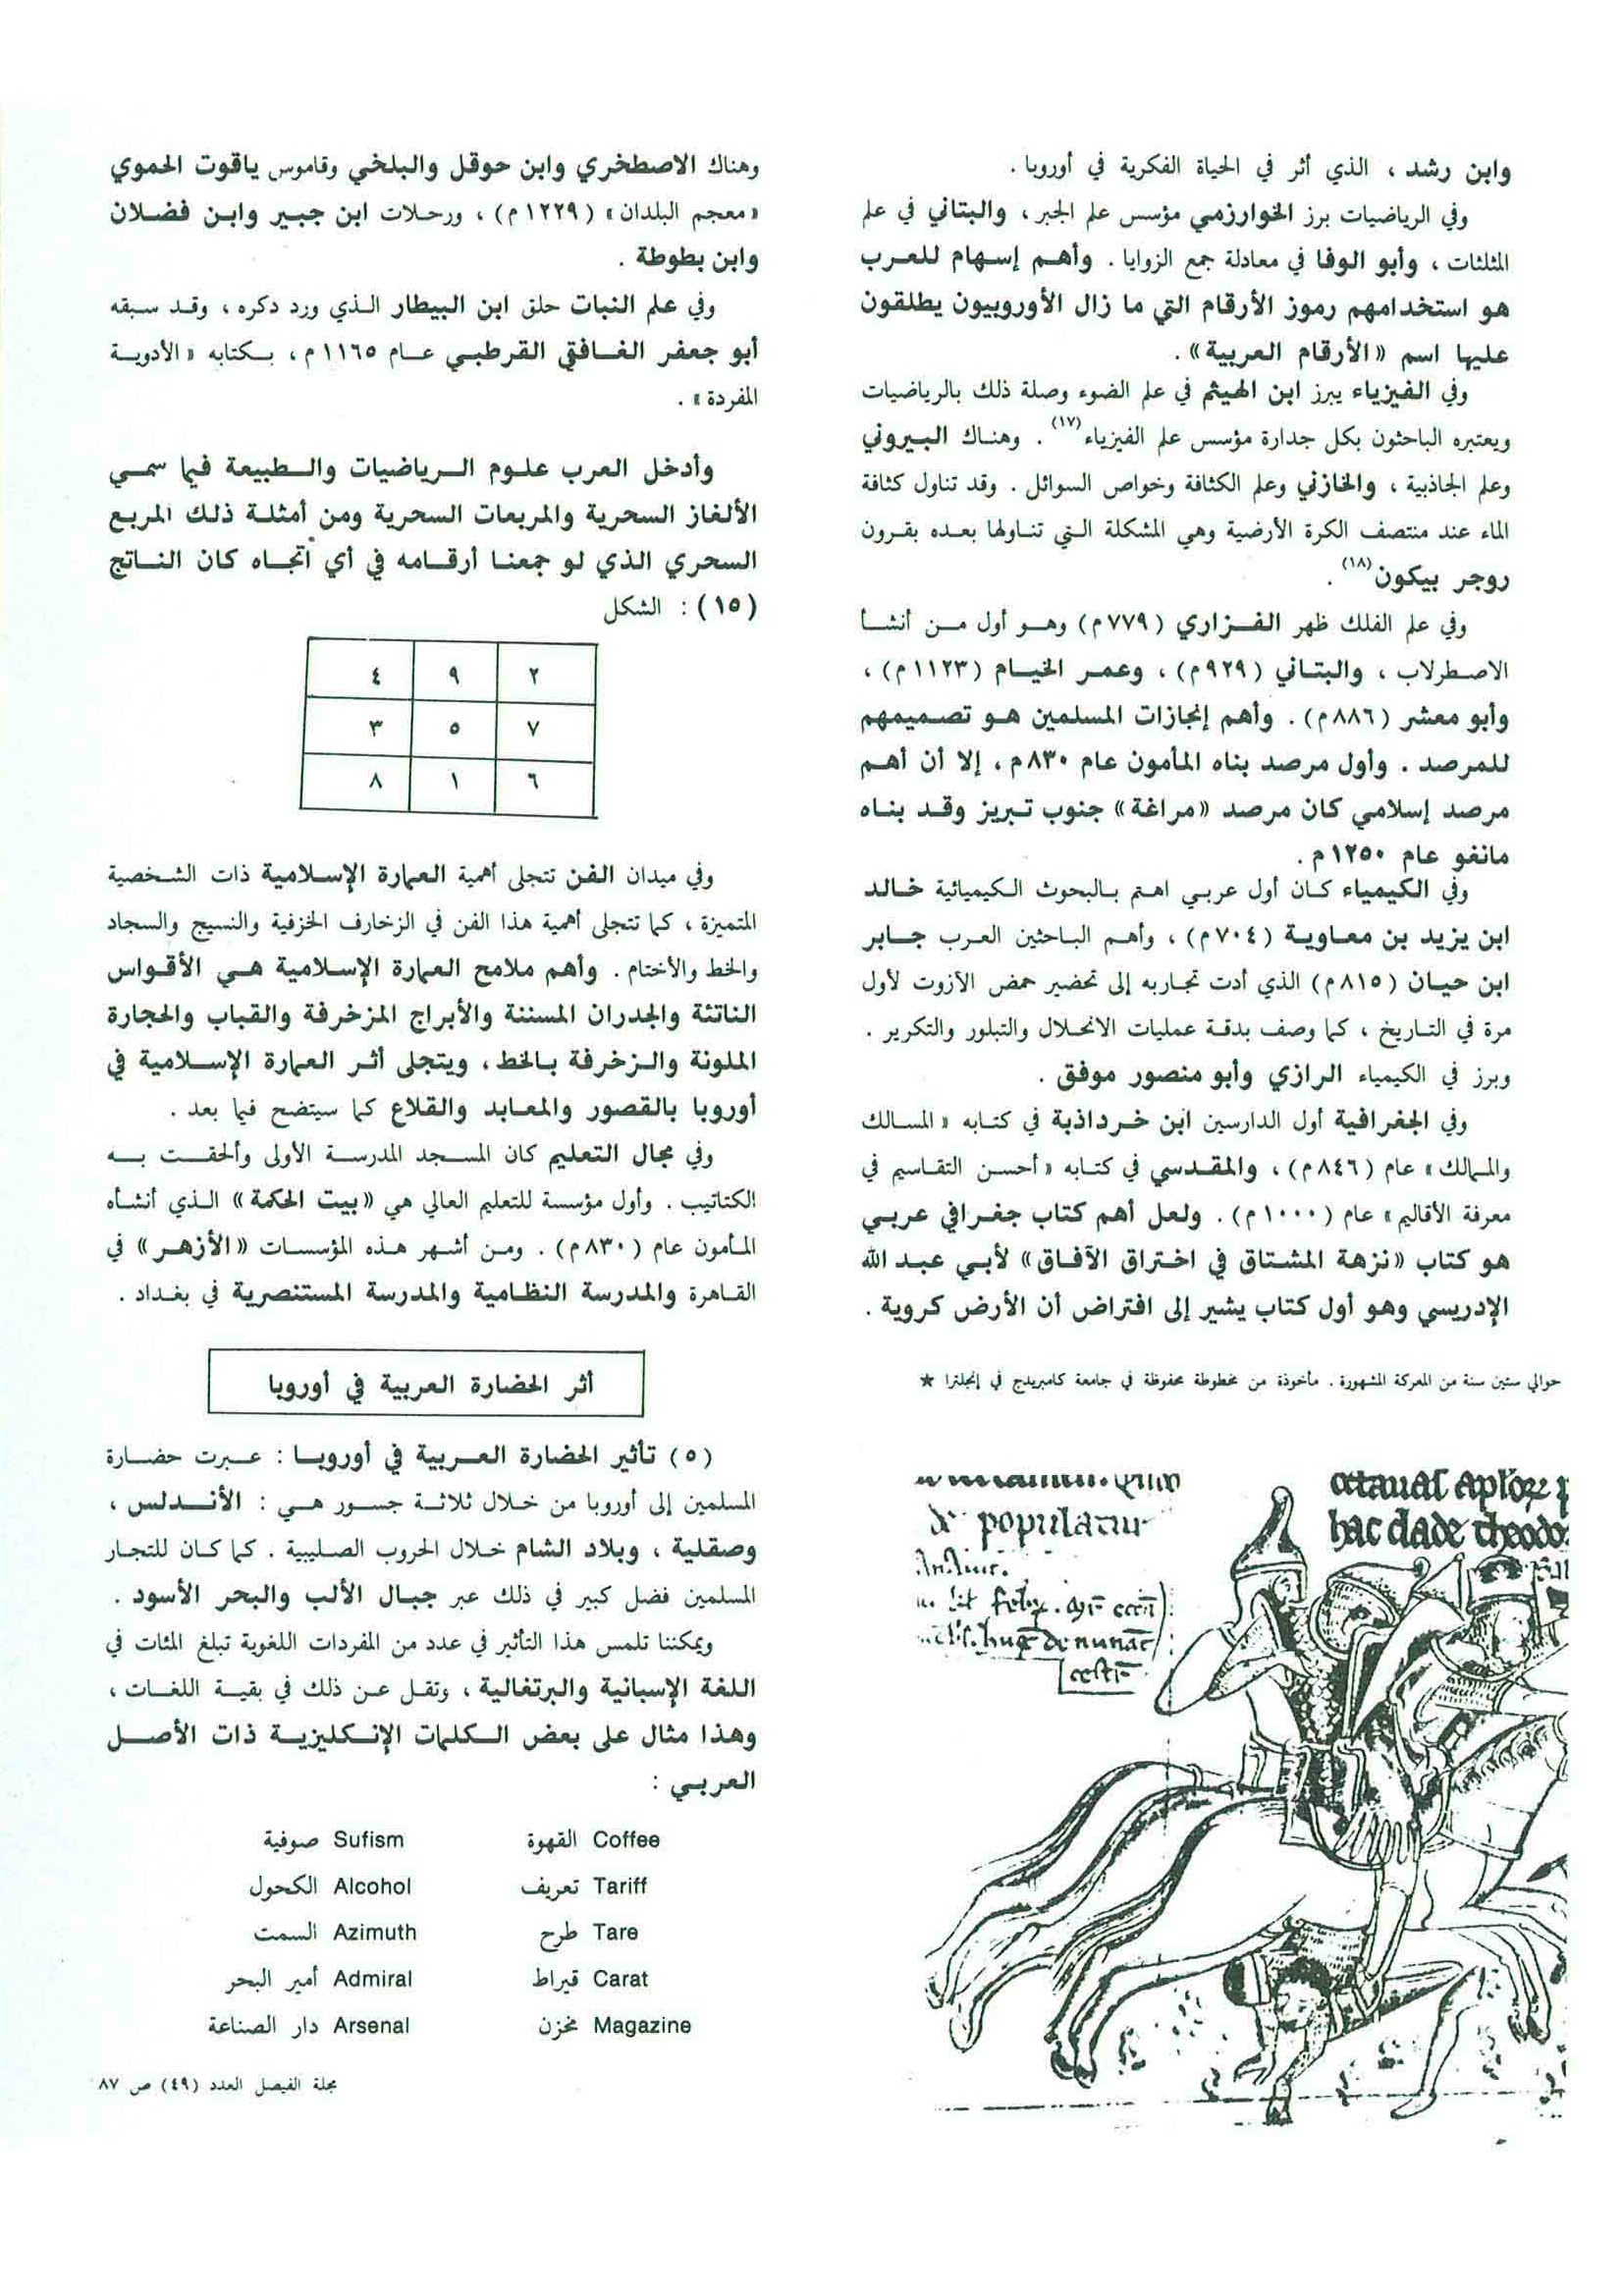 وابن رشد ، الذي أثر في الحياة الفكرية في أوروبا .
وفي الرياضيات برز الخوارزمي مؤسس علم الجبر ، والبتاني في علم
المثلثات ، وأبو الوفا في معادلة جمع الزوايا . وأهم إسهام للعرب
هو استخدامهم رموز الأرقام التي ما زال الأوروبيون يطلقون
عليها اسم «الأرقام العربية» .
وفي الفيزياء يبرز ابن الهيثم في علم الضوء وصلة ذلك بالرياضيات
ويعتبره الباحثون بكل جدارة مؤسس علم الفيزياء(١٧) . وهناك البيروني
وعلم الجاذبية ، والخازني وعلم الكثافة وخواص السوائل . وقد تناول كثافة
الماء عند منتصف الكرة الأرضية وهي المشكلة التي تناولها بعده بقرون
روجر بيكون(١٨) .
وفي علم الفلك ظهر الفزاري (٧٧٩م) وهو أول من أنشأ
الاصطرلاب ، والبتاني (٩٢٩م) ، وعمر الخيام (١١٢٣م) ،
وأبو معشر (٨٨٦م) . وأهم إنجازات المسلمين هو تصميمهم
للمرصد . وأول مرصد بناه المأمون عام ٨٣٠م ، إلا أن أهم
مرصد إسلامي كان مرصد «مراغة» جنوب تبريز وقد بناه
مانغو عام ١٢٥٠م .
وفي الكيمياء كان أول عربي اهتم بالبحوث الكيميائية خالد
ابن يزيد بن معاوية (٧٠٤م) ، وأهم الباحثين العرب جابر
ابن حيان (٨١٥م) الذي أدت تجاربه إلى تحضير حمض الآزوت لأول
مرة في التاريخ ، كما وصف بدقة عمليات الانحلال والتبلور والتكرير .
وبرز في الكيمياء الرازي وأبو منصور موفق .
وفي الجغرافية أول الدارسين ابن خرداذبة في كتابه «المسالك
والممالك» عام (٨٤٦م) ، والمقدسي في كتابه «أحسن التقاسيم في
معرفة الأقاليم» عام (١٠٠٠م) . ولعل أهم كتاب جغرافي عربي
هو كتاب «نزهة المشتاق في اختراق الآفاق» لأبي عبد الله
الإدريسي وهو أول كتاب يشير إلى افتراض أن الأرض كروية .
حوالي ستين سنة من المعركة المشهورة . مأخوذة من مخطوطة محفوظة في جامعة كامبريدج في إنجلترا ★
de populatur
octauas
hac clade
وهناك الاصطخري وابن حوقل والبلخي وقاموس ياقوت الحموي
«معجم البلدان» (١٢٢٩م) ، ورحلات ابن جبير وابن فضلان
وابن بطوطة .
وفي علم النبات حلق ابن البيطار الذي ورد دكره ، وقد سبقه
أبو جعفر الغافقي القرطبي عام ١١٦٥م ، بكتابه «الأدوية
المفردة» .
وأدخل العرب علوم الرياضيات والطبيعة فيما سمي
الألغاز السحرية والمربعات السحرية ومن أمثلة ذلك المربع
السحري الذي لو جمعنا أرقامه في أي أتجاه كان الناتج
(١٥) : الشكل
٢ ٩ ٤
٧ ٥ ٣
٦ ١ ٨
وفي ميدان الفن تتجلى أهمية العمارة الإسلامية ذات الشخصية
المتميزة ، كما تتجلى أهمية هذا الفن في الزخارف الخزفية والنسيج والسجاد
والخط والأختام . وأهم ملامح العمارة الإسلامية هي الأقواس
الناتئة والجدران المسننة والأبراج المزخرفة والقباب والحجارة
الملونة والزخرفة بالخط ، ويتجلى أثر العمارة الإسلامية في
أوروبا بالقصور والمعابد والقلاع كما سيتضح فيما بعد .
وفي مجال التعليم كان المسجد المدرسة الأولى وألحقت به
الكتاتيب . وأول مؤسسة للتعليم العالي هي «بيت الحكمة» الذي أنشأه
المأمون عام (٨٣٠م) . ومن أشهر هذه المؤسسات «الأزهر» في
القاهرة والمدرسة النظامية والمدرسة المستنصرية في بغداد .
أثر الحضارة العربية في أوروبا
(٥) تأثير الحضارة العربية في أوروبا : عبرت حضارة
المسلمين إلى أوروبا من خلال ثلاثة جسور هي : الأندلس ،
وصقلية ، وبلاد الشام خلال الحروب الصليبية . كما كان للتجار
المسلمين فضل كبير في ذلك عبر جبال الألب والبحر الأسود .
ويمكننا تلمس هذا التأثير في عدد من المفردات اللغوية تبلغ المئات في
اللغة الإسبانية والبرتغالية ، وتقل عن ذلك في بقية اللغات ،
وهذا مثال على بعض الكلمات الإنكليزية ذات الأصل
العربي :
Coffee القهوة Sufism صوفية
Tariff تعريف Alcohol الكحول
Tare طرح Azimuth السمت
Carat قيراط Admiral أمير البحر
Magazine مخزن Arsenal دار الصناعة
مجلة الفيصل العدد (٤٩) ص ٨٧